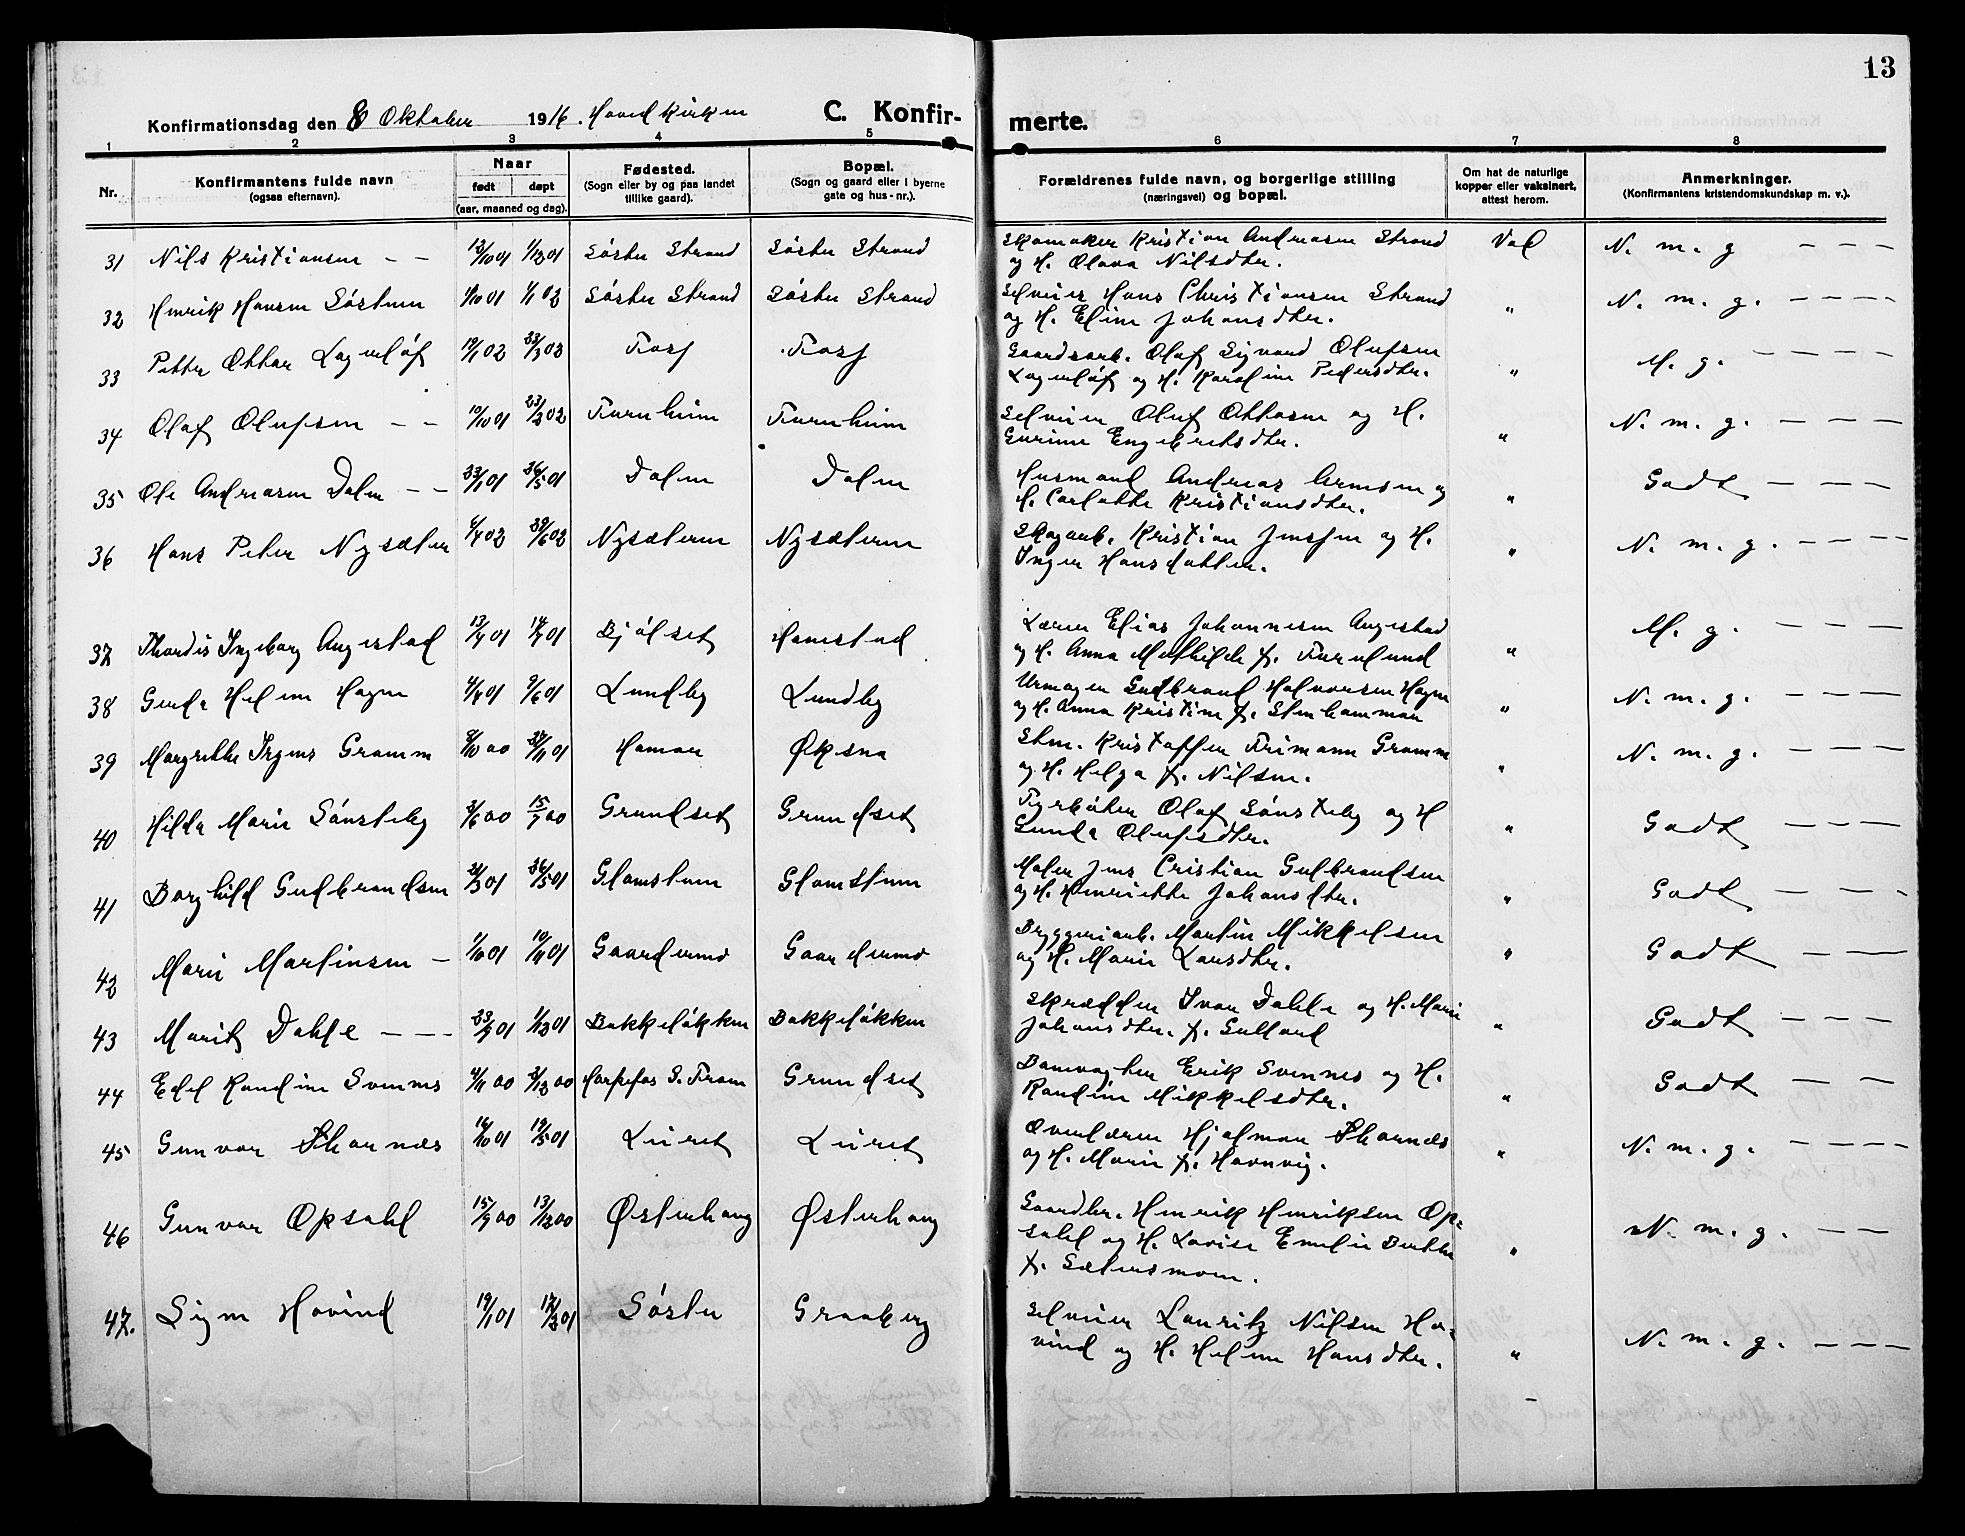 13
Konfirmationsdag den 8 Oktober 1916. Hovedkirken C. Konfir-
merte.
1 2 3 4 5
6 7 8
Nr. Konfirmantens fulde navn (ogsaa efternavn). Naar født døpt (aar, maaned og dag). Fødested. (Sogn eller by og paa landet tillike gaard). Bopæl. (Sogn og gaard eller i byerne gate og hus-nr.).
Forældrenes fulde navn, og borgerlige stilling (næringsvei) og bopæl. Om hat de naturlige kopper eller vaksinert, attest herom. Anmerkninger. (Konfirmantens kristendomskundskap m. v.).
31 Nils Kristiansen – – 13/10 01 1/12 01 Søstu Strand Søstu Strand
Skomaker Kristian Andreasen Strand Vac N. m. g – – –
og H. Olava Nilsdtr.
32 Henrik Hansen Søstuen 1/10 01 1/1 02 Søstu Strand Søstu Strand
Selveier Hans Christiansen Strand " N. m. g. – – – –
og H. Eline Johansdtr.
33 Petter Ottar Lagerløf 19/1 02 23/3 02 Torp Torp
Gaardsarb. Olaf Sigvard Olufsen " M. g. – – – –
Lagerløf og H. Karoline Pedersdtr.
34 Olaf Olufsen – – 10/10 01 23/2 02 Furuheim Furuheim
Selveier Oluf Ottosen og H. " N. m. g. – – –
Gurine Engebretsdtr.
35 Ole Andreasen Dalen – – 23/1 01 26/5 01 Dalen Dalen
Husmand Andreas Arnesen og " Godt – – –
H. Carlotte Kristiansdtr.
36 Hans Peter Nysæter 4/4 02 29/6 02 Nysæteren Nysæteren
Skogarb. Kristian Jensen og H. " N. m. g. – – – –
Inger Hansdatter.
37 Thordis Ingeborg Angestad 13/4 01 14/7 01 Bjølset Hamstad
Lærer Elias Johannesen Angestad " M. g. – – – –
og H. Anna Mathilde f. Furulund
38 Gerda Helene Hagen 4/4 01 9/6 01 Lundby Lundby
Urmager Gudbrand Halvorsen Hagen " N. m. g. – – –
og H. Anna Kristine f. Stenhammer
39 Margrethe Irgens Gramm 8/10 00 24/11 01 Hamar Øksna
Stm. Kristoffer Frimann Gramm " N. m. g. – – –
og H. Helga f. Nilsen.
40 Hilda Marie Sønsteby 3/6 00 15/7 00 Grundset Grundset
Fyrbøter Olaf Sønsteby og H " Godt – – –
Gunda Olufsdtr.
41 Borghild Gudbrandsen 31/3 01 26/5 01 Glomstuen Glomstuen
Maler Jens Cristian Gulbrandsen " Godt – – –
og H. Henriette Johansdtr.
42 Marie Martinsen – 1/10 01 10/11 01 Gaardermo Gaardermo
Bryggeriarb. Martin Mikkelsen " Godt – – –
og H. Marie Larsdtr.
43 Marit Dahle – – – 23/9 01 1/12 01 Bakkeløkken Bakkeløkken
Skrædder Ivar Dahle og H. Marie " Godt – – –
Johansdtr. f. Gullord
44 Edel Randine Svennes 4/11 00 31/12 00 Harpefos S. Fron Grundset
Banevogter Erik Svennes og H. " Godt – –
Randine Mikkelsdtr.
45 Gunvor Thornæs 16/10 01 19/5 01 Leiret Leiret
Overlærer Hjalmar Thornæs " N. m. g. – – – –
og H. Marie f. Havnvig.
46 Gunvor Opsahl 15/9 00 13/12 00 Østerhaug Østerhaug
Gaardbr. Henrik Henriksen Op- " N. m. g. – –
sahl og H. Lovise Emelie Berthe
f. Sætersmoen.
47. Signe Hovind 19/1 01 17/3 01 Søstu Graaberg
Selveier Lauritz Nilsen Ho- " N. m. g. – – –
vind og H. Helene Hansdtr.